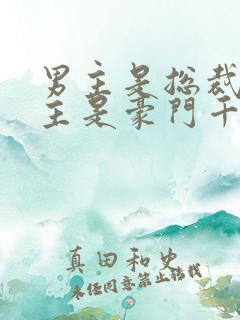 男主是总裁
主是豪门千
真田和史
未经同意禁止转载